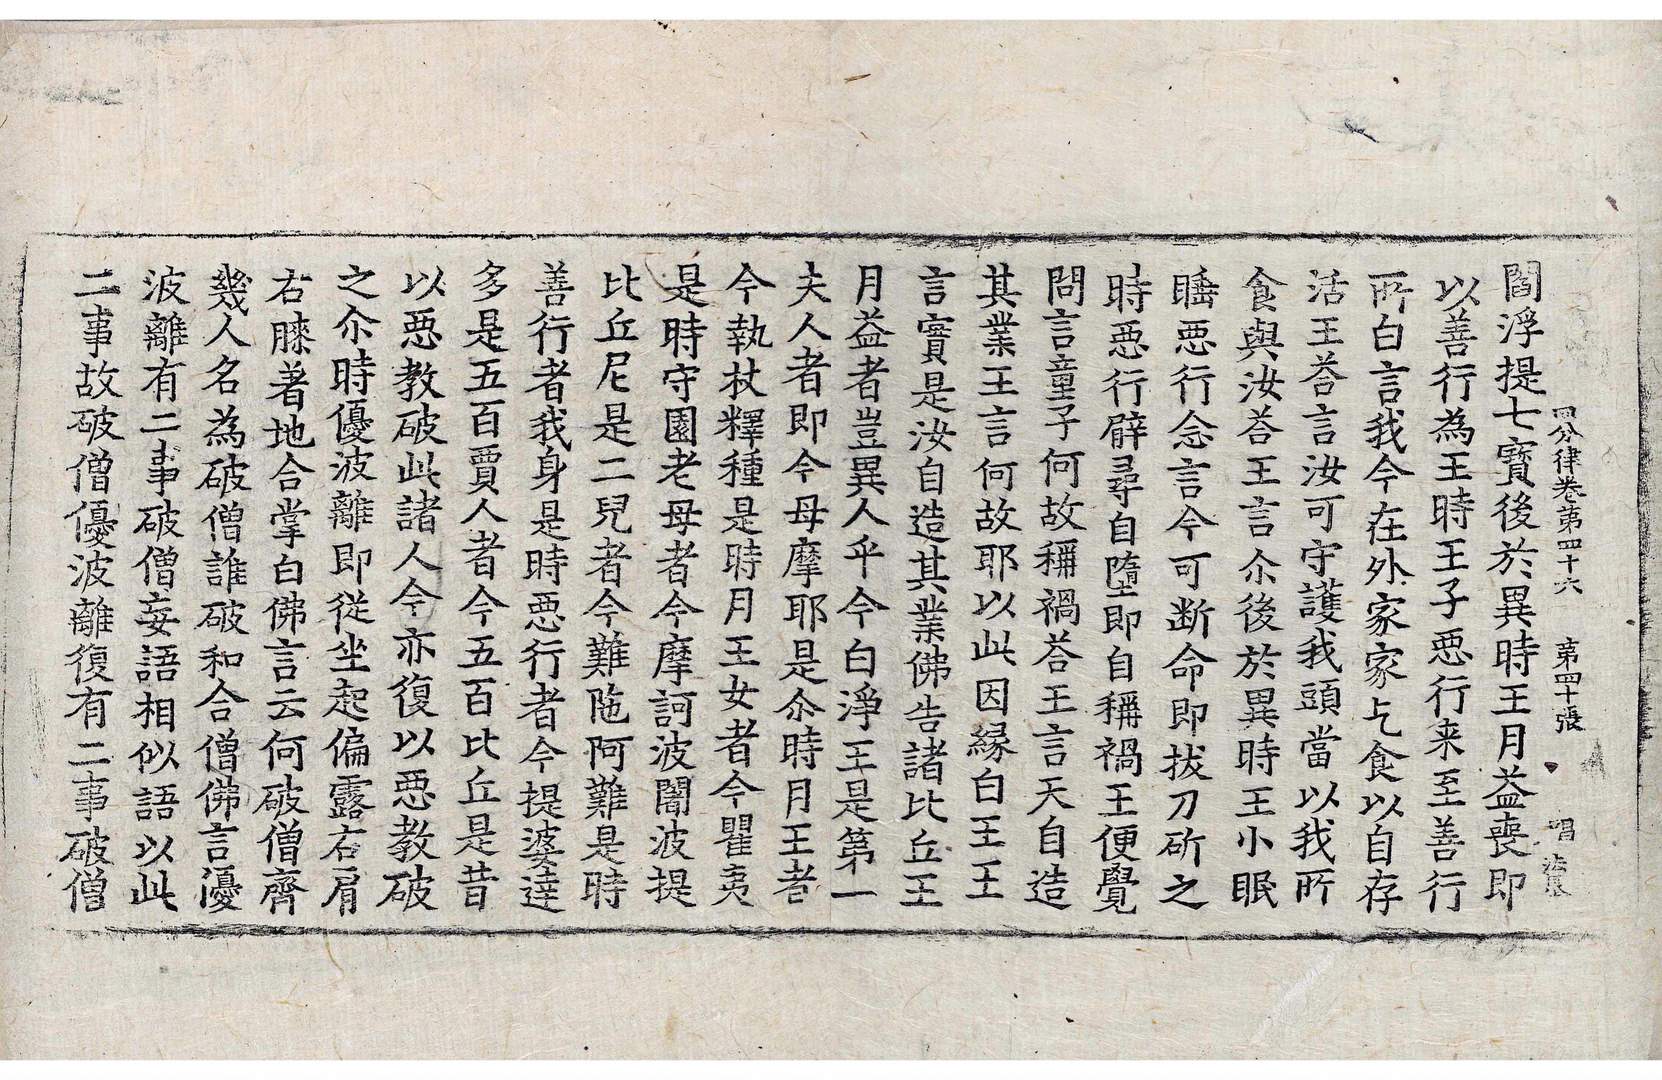 四分律卷第四十六 第四十張 唱
閻浮提七寶後於異時王月益喪即
以善行為王時王子惡行来至善行
所白言我今在外家家乞食以自存
活王荅言汝可守護我頭當以我所
食與汝荅王言尒後於異時王小眠
睡惡行念言今可断命即拔刀斫之
時惡行臂尋自墮即自稱禍王便覺
問言童子何故稱禍荅王言天自造
其業王言何故耶以此因緣白王王
言實是汝自造其業佛告諸比丘王
月益者豈異人乎今白淨王是第一
夫人者即今母摩耶是尒時月王者
今執杖釋種是時月王女者今瞿夷
是時守園老母者今摩訶波闍波提
比丘尼是二兒者今難陁阿難是時
善行者我身是時惡行者今提婆達
多是五百賈人者今五百比丘是昔
以惡教破此諸人今亦復以惡教破
之尒時優波離即從坐起偏露右肩
右膝著地合掌白佛言云何破僧齊
幾人名為破僧誰破和合僧佛言優
波離有二事破僧妄語相似語以此
二事故破僧優波離復有二事破僧